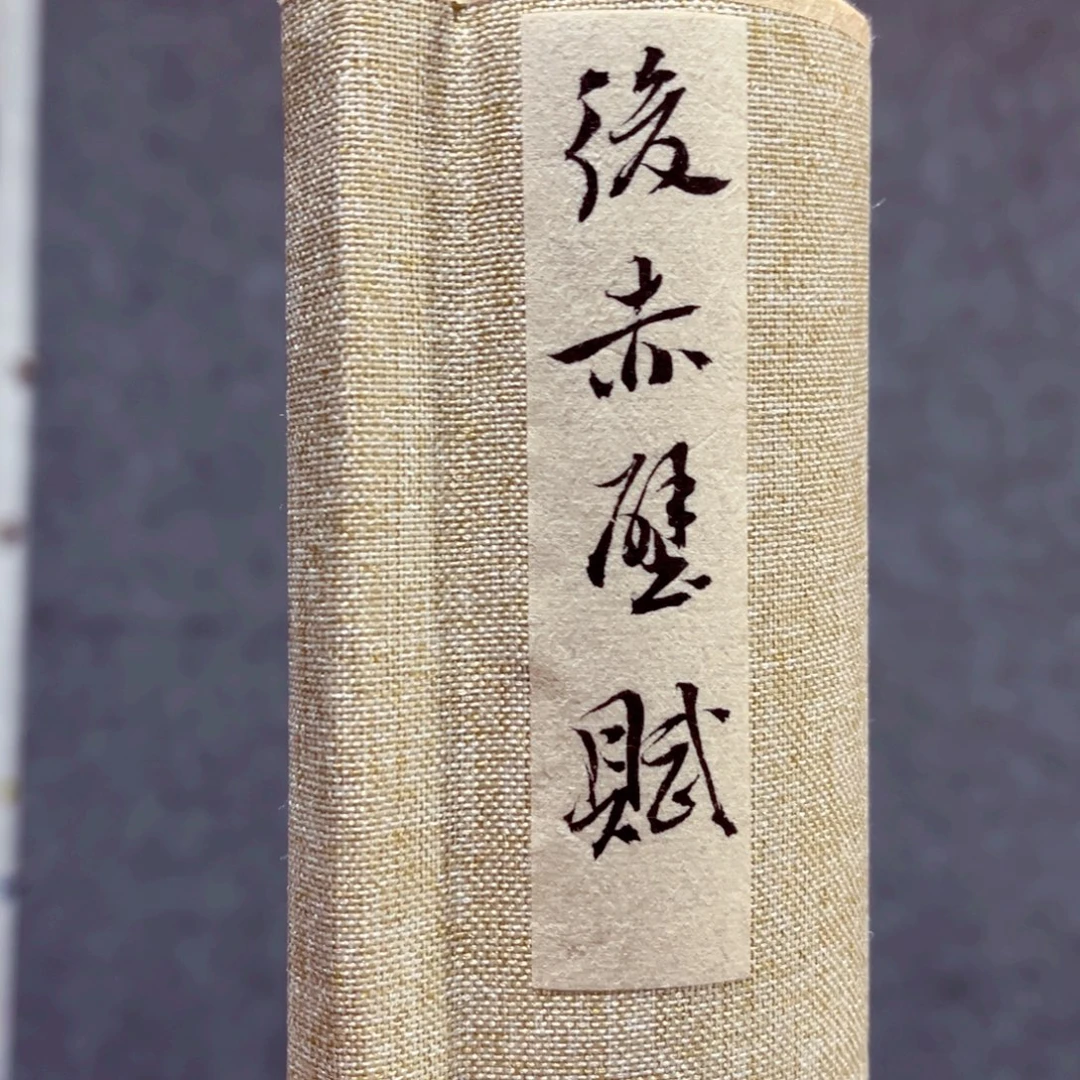 後赤壁賦